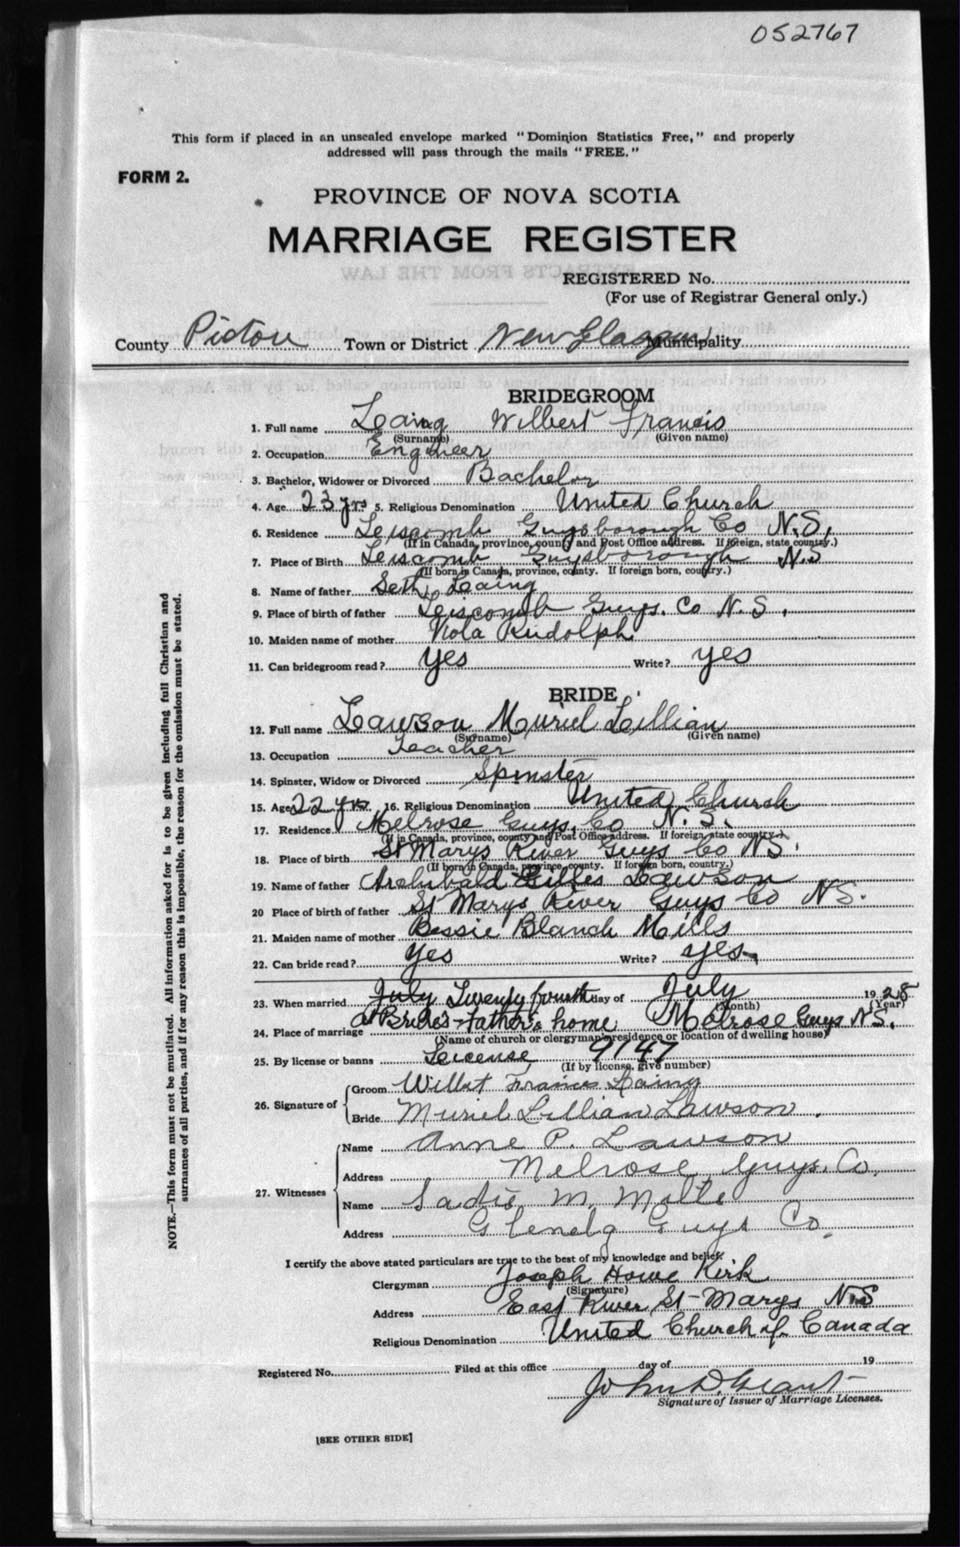 052767
This form if placed in an unsealed envelope marked "Dominion Statistics Free," and properly
addressed will pass through the mails "FREE."
FORM 2.
PROVINCE OF NOVA SCOTIA
MARRIAGE REGISTER
REGISTERED No.
(For use of Registrar General only.)
County Pictou Town or District New Glasgow Municipality
BRIDEGROOM
1. Full name Laing Wilbert Francis
(Surname) (Given name)
2. Occupation Engineer
3. Bachelor, Widower or Divorced Bachelor
4. Age 23 yrs 5. Religious Denomination United Church
6. Residence Leiscomb Guysborough Co N.S.
(If in Canada, province, county and Post Office address. If foreign, state country.)
7. Place of Birth Leiscomb Guysborough N.S
(If born in Canada, province, county. If foreign born, country.)
8. Name of father Seth Laing
9. Place of birth of father Leiscomb Guys. Co N.S.
10. Maiden name of mother Viola Rudolph
11. Can bridegroom read? yes Write? yes
BRIDE
12. Full name Lawson Muriel Lillian
(Surname) (Given name)
13. Occupation Teacher
14. Spinster, Widow or Divorced Spinster
15. Age 22 yrs 16. Religious Denomination United Church
17. Residence Melrose Guys. Co N.S.
(If in Canada, province, county and Post Office address. If foreign, state country.)
18. Place of birth St Marys River Guys Co NS.
(If born in Canada, province, county. If foreign born, country.)
19. Name of father Archibald Lawson
20 Place of birth of father St Marys River Guys Co NS.
21. Maiden name of mother Bessie Blanch Mills
22. Can bride read? yes Write? yes
23. When married July Twenty fourth day of July 1928
(Month) (Year)
24. Place of marriage at Bride's father's home Melrose Guys N.S.
(Name of church or clergyman's residence or location of dwelling house)
25. By license or banns Leicense 9147
(If by license, give number)
26. Signature of
Groom Wilbert Francis Laing
Bride Muriel Lillian Lawson.
27. Witnesses
Name Anne P. Lawson
Address Melrose Guys. Co.
Name Sadie M.
Address Glenelg Guys Co.
I certify the above stated particulars are true to the best of my knowledge and belief.
Clergyman Joseph Howe Kirk
(Signature)
Address East River St-Marys N.S
Religious Denomination United Church of Canada
Registered No. Filed at this office day of 19
John D. Grant
Signature of Issuer of Marriage Licenses.
[SEE OTHER SIDE]
NOTE.—This form must not be mutilated. All information asked for is to be given including full Christian and
surnames of all parties, and if for any reason this is impossible, the reason for the omission must be stated.